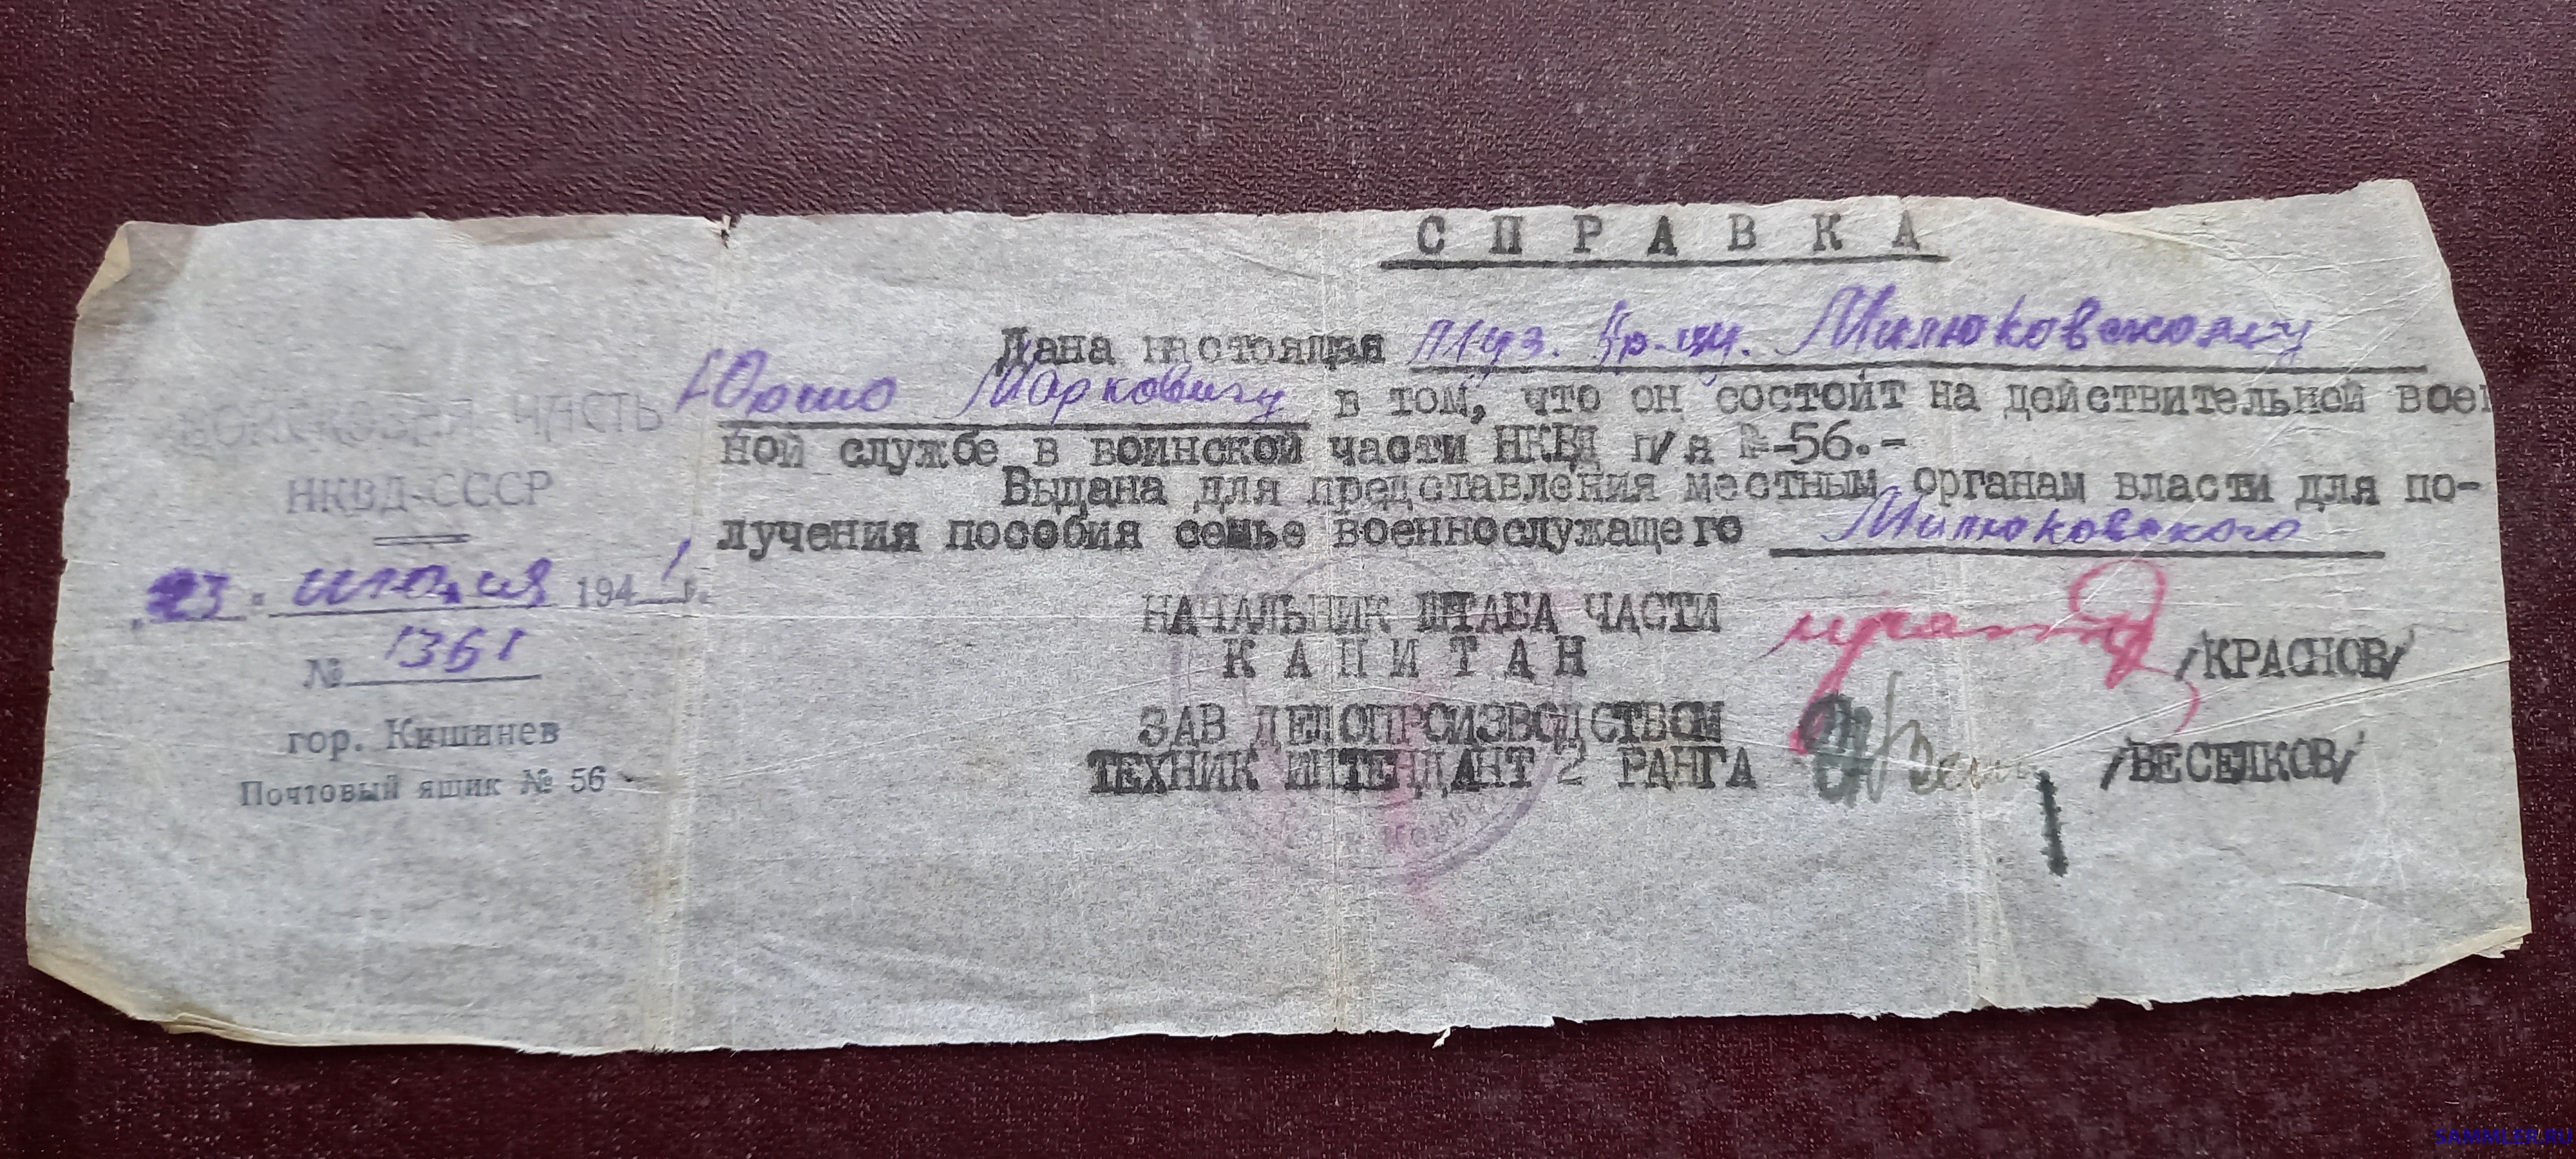 СПРАВКА
Дана настоящая Муз. Кр-цу. Милюковскому
Юрию Марковичу в том, что он состоит на действительной воен
ной службе в воинской части НКВД п/я №-56.-
Выдана для представления местным органам власти для по-
лучения пособия семье военнослужащего Милюковского
НАЧАЛЬНИК ШТАБА ЧАСТИ
КАПИТАН /КРАСНОВ/
ЗАВ ДЕЛОПРОИЗВОДСТВОМ
ТЕХНИК ИНТЕНДАНТ 2 РАНГА /ВЕСЕЛКОВ/
ВОЙСКОВАЯ ЧАСТЬ
НКВД-СССР
23 " 1941 г.
№ 1361
гор. Кишинев
Почтовый ящик № 56
SAMMLER.RU